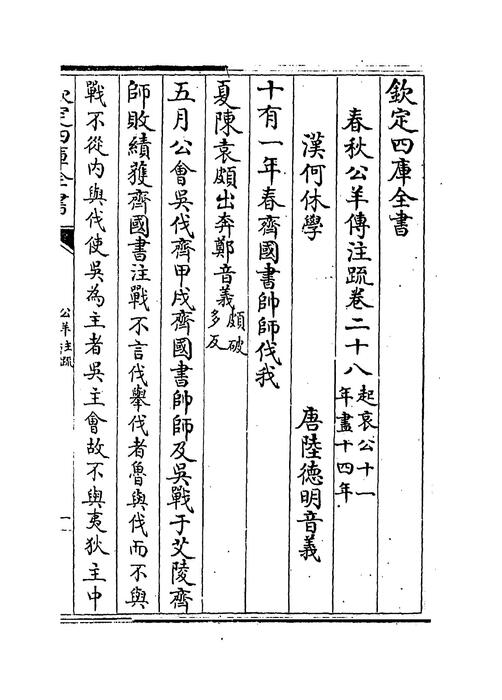 欽定四庫全書
春秋公羊傳注疏卷二十八起哀公十一年盡十四年
漢何休學　唐陸德明音義
十有一年春齊國書帥師伐我
夏陳袁頗出奔鄭音義頗破多反
五月公會吳伐齊甲戌齊國書帥師及吳戰于艾陵齊
師敗績獲齊國書注戰不言伐舉伐者魯與伐而不與
戰不從內與伐使吳為主者吳主會故不與夷狄主中
欽定四庫全書
公羊注疏